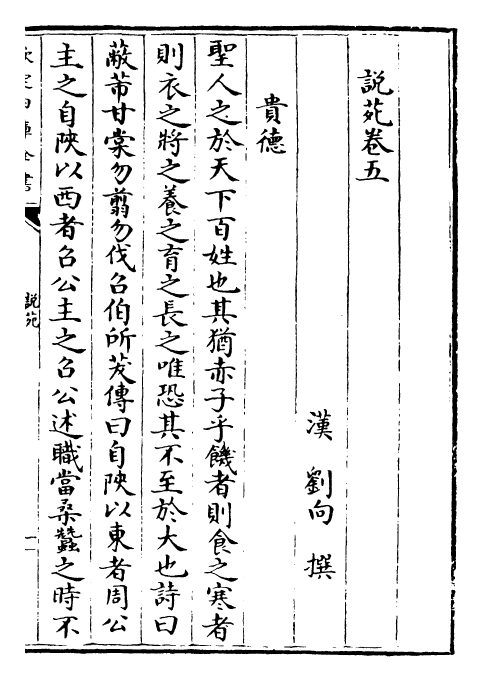 說苑卷五
漢 劉向 撰
貴德
聖人之於天下百姓也其猶赤子乎饑者則食之寒者
則衣之將之養之育之長之唯恐其不至於大也詩曰
蔽芾甘棠勿翦勿伐召伯所茇傳曰自陜以東者周公
主之自陜以西者召公主之召公述職當桑蠶之時不
說苑
一